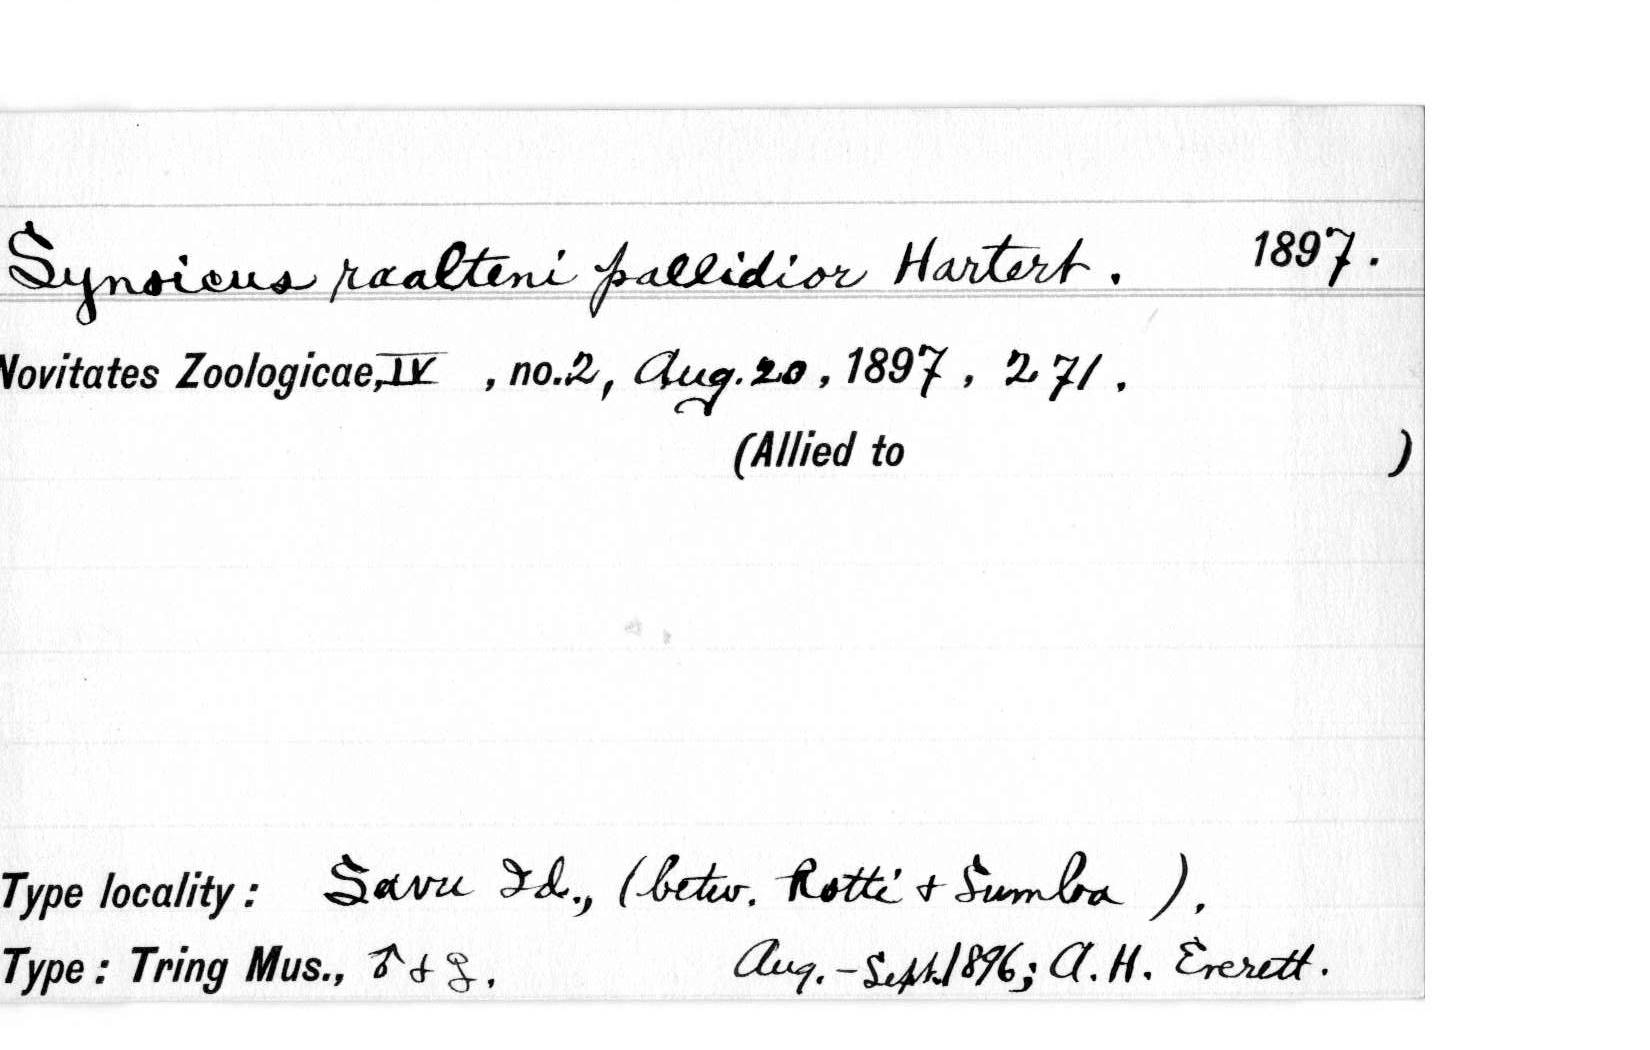 Synoicus raalteni pallidior Hartert. 1897.
Novitates Zoologicae, IV, no. 2, Aug. 20, 1897, 271.
(Allied to )
Type locality: Savu Id., (betw. Rotti & Sumba ).
Type: Tring Mus., ♂ & ♀. Aug.-Sept. 1896; A. H. Everett.